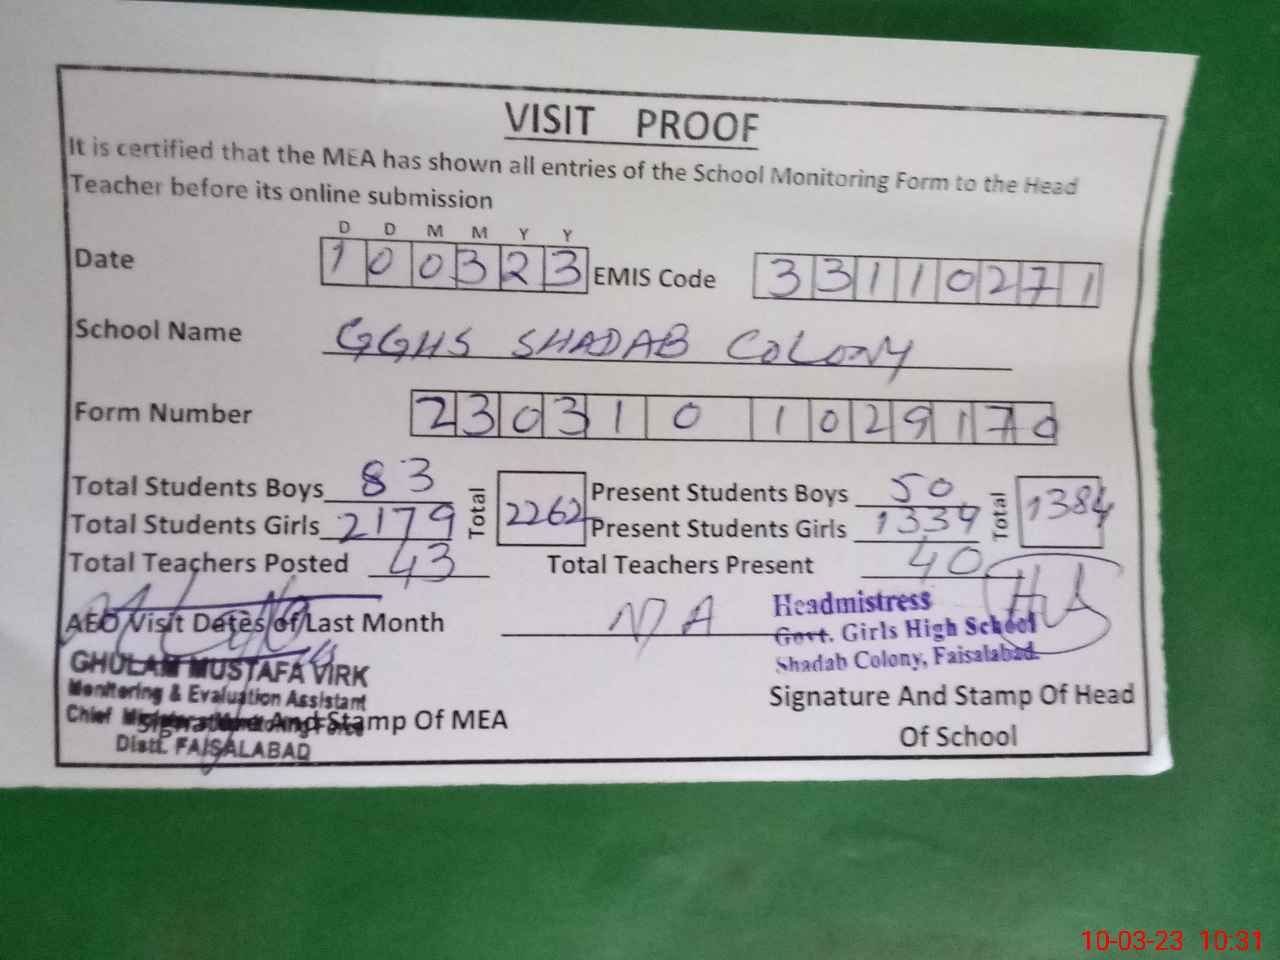 VISIT PROOF
It is certified that the MEA has shown all entries of the School Monitoring Form to the Head
Teacher before its online submission
D D M M Y Y
Date 1 0 0 3 2 3 EMIS Code 3 3 1 1 0 2 7 1
School Name GGHS SHADAB COLONY
Form Number 2 3 0 3 1 0 1 0 2 9 1 7 0
Total Students Boys 83 Total 2262 Present Students Boys 50 Total 1384
Total Students Girls 2179 Present Students Girls 1334
Total Teachers Posted 43 Total Teachers Present 40
AEO Visit Dates of Last Month N/A
Headmistress
Govt. Girls High School
Shadab Colony, Faisalabad.
GHULAM MUSTAFA VIRK
Monitoring & Evaluation Assistant
Chief
Distt. FAISALABAD
Signature And Stamp Of MEA
Signature And Stamp Of Head
Of School
10-03-23 10:31